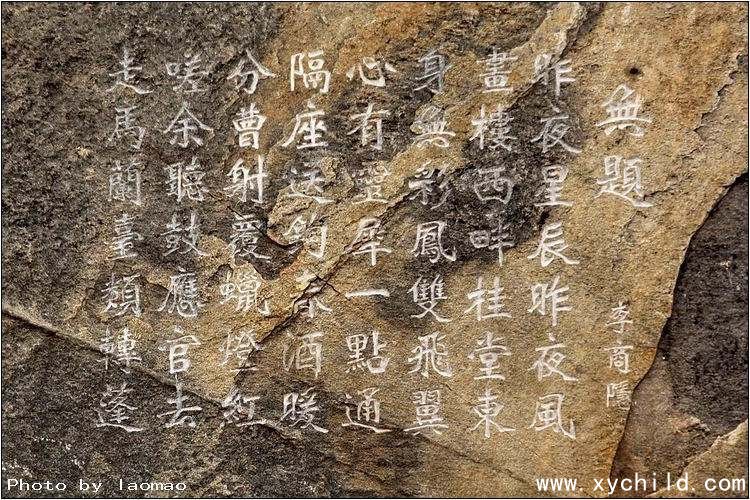 無題
李商隱
昨夜星辰昨夜風
畫樓西畔桂堂東
身無彩鳳雙飛翼
心有靈犀一點通
隔座送鉤春酒暖
分曹射覆蠟燈紅
嗟余聽鼓應官去
走馬蘭臺類轉蓬
Photo by laomao
www.xychild.com